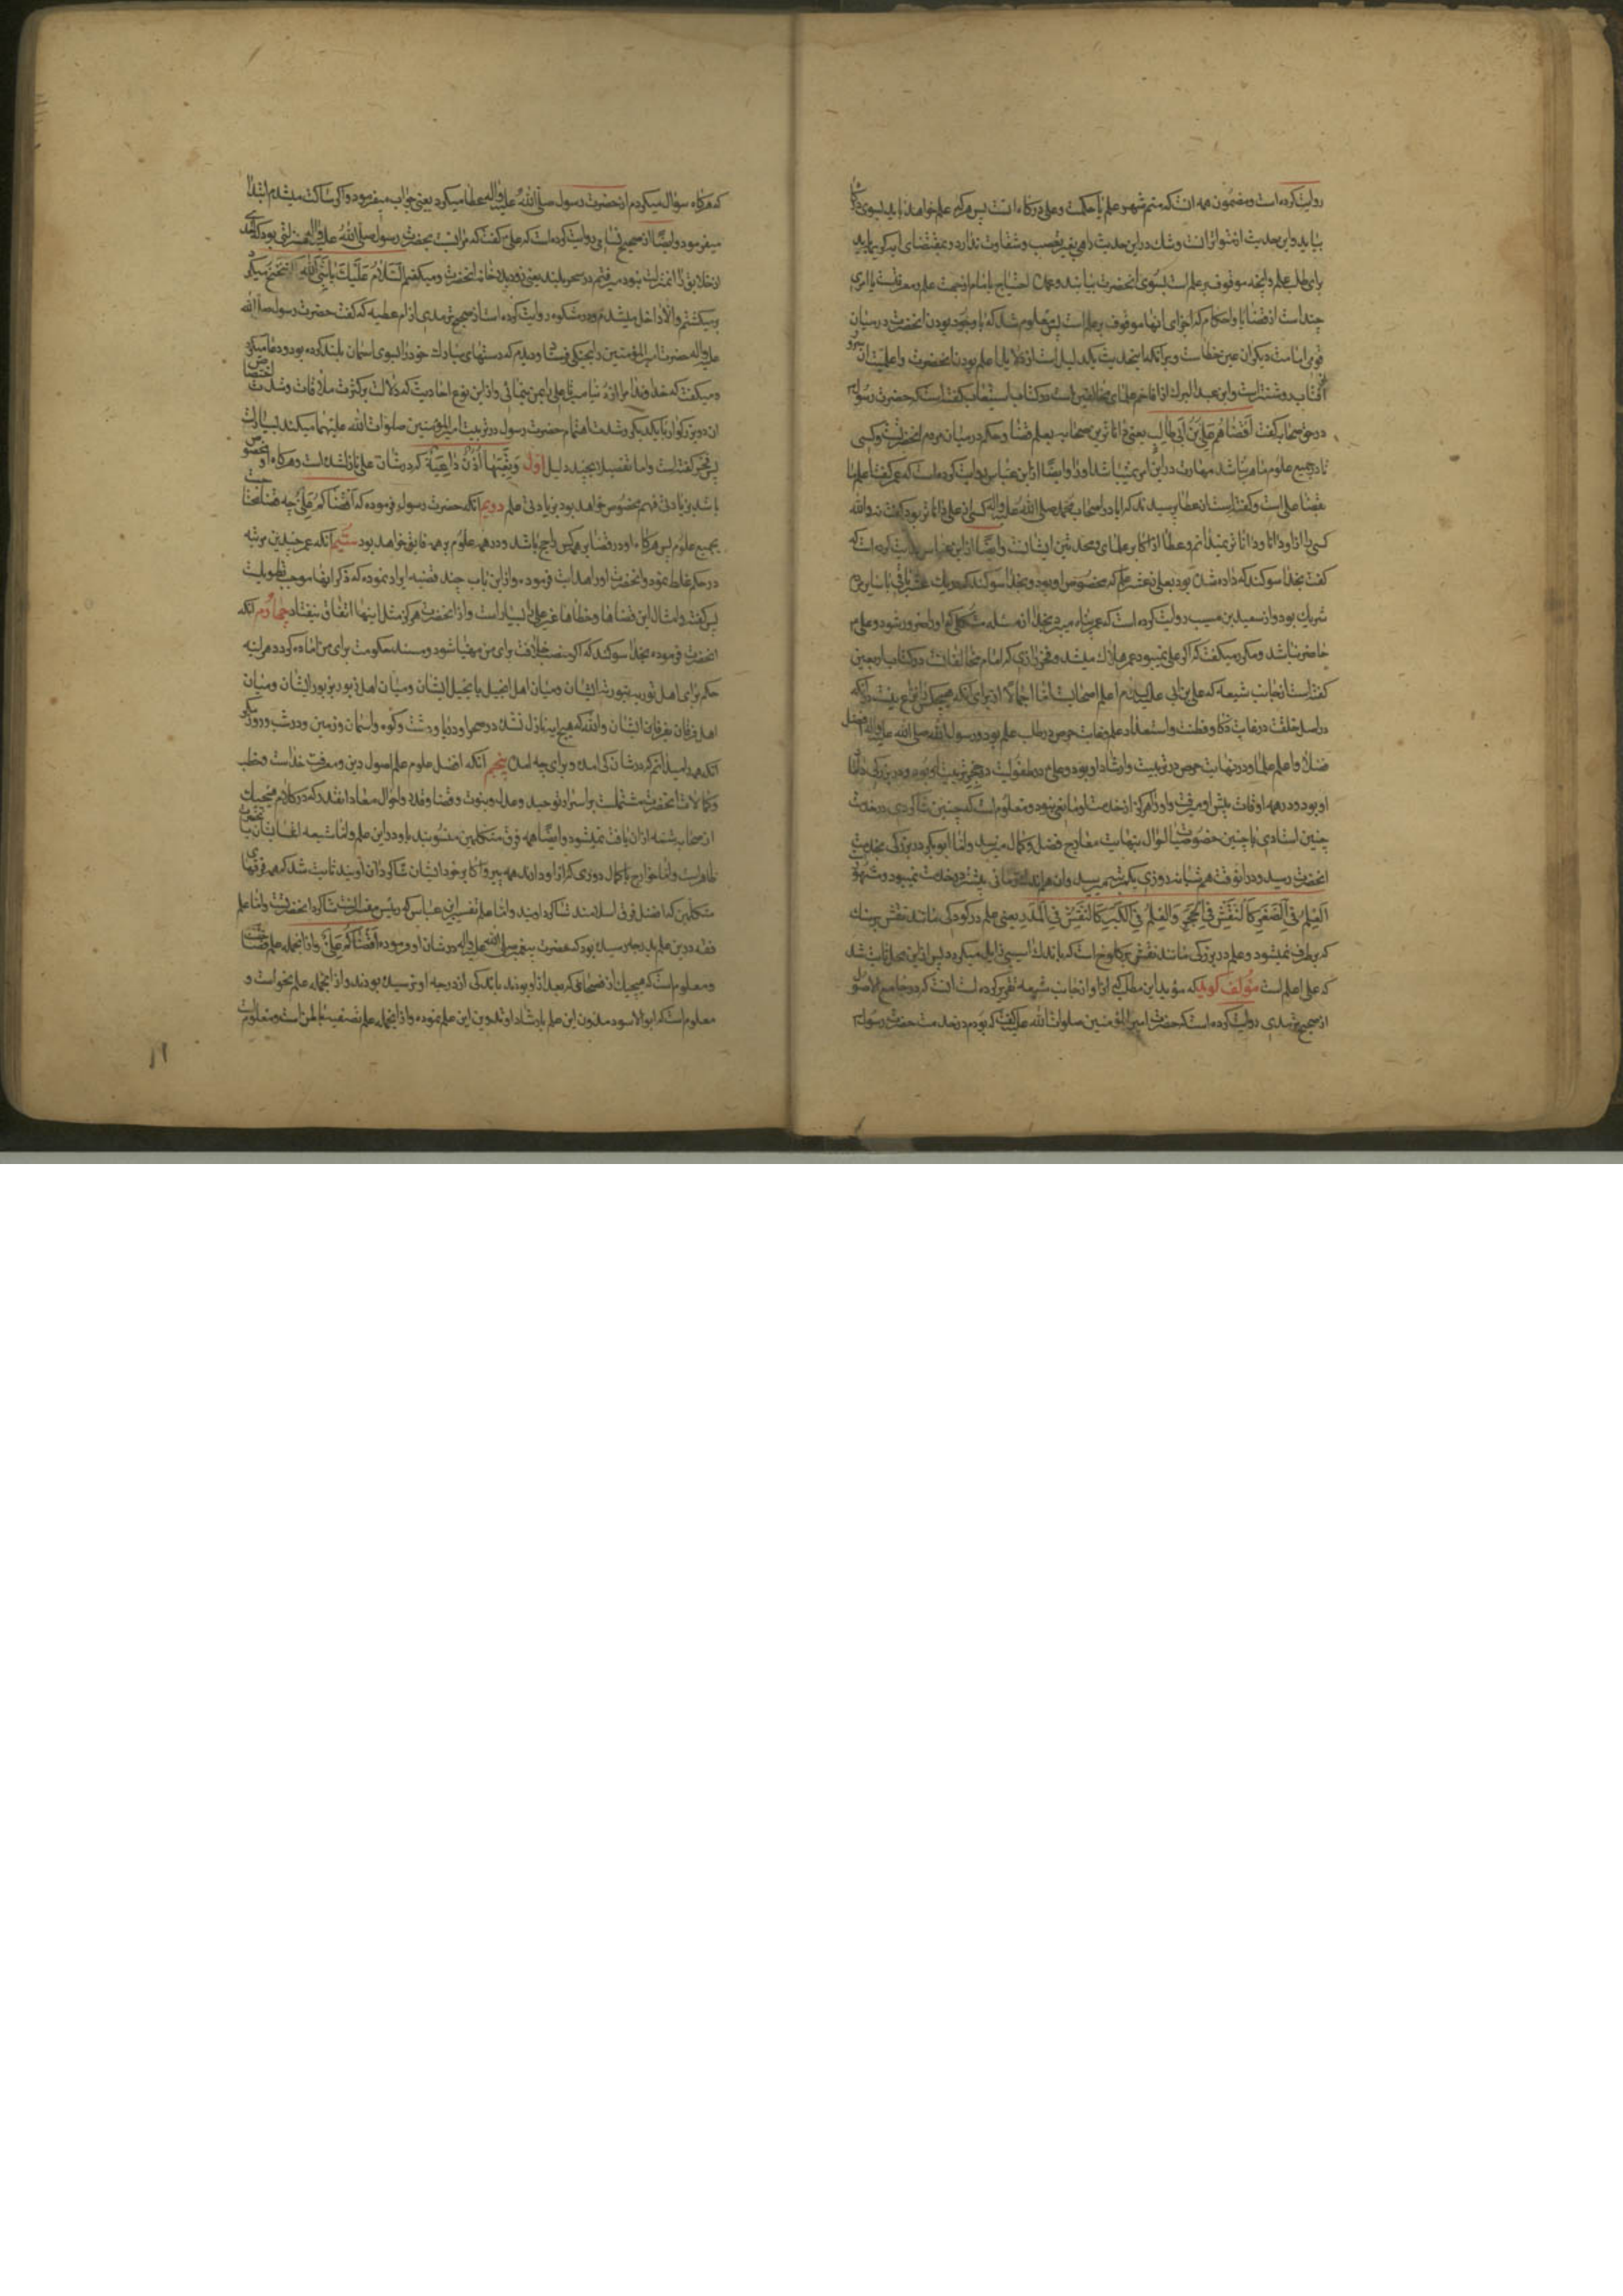 روایت کرده است و مضمون همه آنست که منم شهر علم یا حکمت و علی در گاه آنست پس هر که علم خواهد باید بسوی درگاه
بیاید و این حدیث از متواترات است و شک در این حدیث راهی بغیر تعصب و شقاوت ندارد و بمقتضای
برای طلب علم و آنچه موقوف بر علم است بسوی آنحضرت بیایند و عمده احتیاج بامام از جهت علم و معرفت
چند است از قضایا و احکام که اجرای آنها موقوف بر علم است پس معلوم شد که با وجود بودن آنحضرت در میان
قومی امامت دیگران عین خطاست و بر آنکه این حدیث یک دلیل است از دلایل اعلم بودن آنحضرت و اعلمیت آن
آفتاب روشنتر است و ابن عبد البر که از اعاظم علمای مخالفین است در کتاب استیعاب گفته است که حضرت رسول
در حق صحابه گفت اقضاهم علی بن ابی طالب یعنی داناترین صحابه بعلم قضا و حکم در میان مردم آنحضرتست و کسی
تا در جمیع علوم ماهر نباشد مهارت در این امر نمیتواند داشت و ایضا از ابن عباس روایت کرده است که عمر گفت اعلم ما
بقضا علی است و گفته است از عطا پرسیدند که آیا در اصحاب محمد صلی الله علیه واله کسی از علی داناتر بود گفت نه والله
کسی را از او دانا و داناتر نمیدانم و عطا از اکابر علمای و محدثین ایشانست و ایضا از ابن عباس روایت کرده است که
گفت بخدا سوگند که داده شده بود بعلی نه عشر علم که مخصوص او بود و بخدا سوگند که در یک عشر باقی با سایر مردم
شریک بود و از سعید بن مسیب روایت کرده است که عمر پناه میبرد بخدا از مسئله مشکلی که او را ضرور شود و علی
حاضر نباشد و مکرر میگفت که اگر علی نمیبود عمر هلاک میشد و فخر رازی که امام مخالفانست در کتاب اربعین
گفته است از جانب شیعه که علی بن ابی طالب اعلم اصحابست اما اجمالا از برای آنکه هیچکس را نزاع نیست در آنکه
در اصل خلقت در غایت ذکا و فطنت و استعداد علم و نهایت حرص در طلب علم بود و رسول الله صلی الله علیه واله افضل
فضلا و اعلم علما و در نهایت حرص در تربیت و ارشاد او بود و علی در طفولیت در حجر تربیت او بود و در بزرگی داماد
او بود و در همه اوقات پیش او میرفت و او را هرگز از خدمت او مانعی نبود و معلوم است که چنین شاگردی در خدمت
چنین استادی با چنین خصوصیات احوال بنهایت معارج فضل و کمال میرسد و اما ابوبکر در بزرگی بخدمت
آنحضرت رسید و در آنوقت هم شبانه روزی یکمرتبه میرسید و آن هم اندک زمانی بیشتر در خدمت نمیبود و مشهور
العلم فی الصغر کالنقش فی الحجر والعلم فی الکبر کالنقش فی المدر یعنی علم در کودکی مانند نقش بر سنگ
که بر طرف نمیشود و علم در بزرگی مانند نقش بر کلوخ است که باندک آسیبی زایل میگردد پس از این مجمل ثابت شد
که علی اعلم است مؤلف گوید که مؤید این مطلب که او از جانب شیعه تقریر کرده است آنست که در جامع الاصول
از صحیح ترمذی روایت کرده است که حضرت امیر المؤمنین صلوات الله علیه گفت که بودم در خدمت حضرت رسول
که هر گاه سؤال میکردم از حضرت رسول صلی الله علیه واله عطا میکرد یعنی جواب میفرمود و اگر ساکت میشدم ابتدا
میفرمود و ایضا از صحیح نسائی روایت کرده است که علی گفت که مرا نسبت بحضرت رسول صلی الله علیه واله منزلتی بود که احدی
از خلایق را آن منزلت نبود میرفتم در سحر بلند یعنی نزدیک خانه آنحضرت و میگفتم السلام علیک یا نبی الله اگر تنحنح میکرد
برمیگشتم و الا داخل میشدم و در مشکوة روایت کرده است از صحیح ترمذی از ام عطیه که گفت حضرت رسول صلی الله
علیه واله حضرت امیر المؤمنین را بجنگی فرستاد و دیدم که دستهای مبارک خود را بسوی آسمان بلند کرده بود و دعا میکرد
و میگفت که خداوندا مرا از دنیا مبر تا علی را بمن بنمائی و از این نوع احادیث که دلالت بر کثرت ملاقات و شدت اختصاص
آن دو بزرگوار با یکدیگر و شدت اهتمام حضرت رسول در تربیت امیر المؤمنین صلوات الله علیهما میکند بسیار است
پس فخر گفته است و اما تفصیلا بچند دلیل اول و تعیها اذن واعیة که در شان علی نازل شده است و هر گاه او مخصوص
باشد بزیادتی فهم مخصوص خواهد بود بزیادتی علم دویم آنکه حضرت رسول فرموده که اقضاکم علی چه قضا محتاجست
بجمیع علوم پس هر گاه او در قضا بر همه کس راجح باشد در همه علوم بر همه فایق خواهد بود سیم آنکه عمر چندین مرتبه
در حکم غلط نمود و آنحضرت او را هدایت فرموده و از این باب چند قضیه ایراد نموده که ذکر آنها موجب تطویلست
پس گفته و امثال این قضاها و خطاها غیر علی را بسیار است و از آنحضرت هرگز مثل اینها اتفاق نیفتاد چهارم آنکه
آنحضرت فرموده بخدا سوگند که اگر منصب خلافت برای من مهیا شود و مسند حکومت برای من آماده گردد هر آینه
حکم نمای اهل توریة بتوریة ایشان و میان اهل انجیل بانجیل ایشان و میان اهل زبور بزبور ایشان و میان
اهل فرقان بفرقان ایشان والله که هیچ آیه نازل نشده در صحرا و دریا و دشت و کوه و آسمان و زمین و در شب و روز مگر
آنکه همه را میدانم که در شان کی آمده و برای چه آمده پنجم آنکه افضل علوم علم اصول دین و معرفت خداست و خطب
و کلامات آنحضرت مشتملست بر اسرار توحید و عدل و نبوت و قضا و قدر و احوال معاد آنقدر که در کلام هیچیک
از صحابه شمه از آن یافت نمیشود و ایضا همه فرق متکلمین منسوبند باو در این علم و اما شیعه انتسابشان باو
ظاهر است و اما خوارج با کمال دوری که از او دارند همه پیرو اکابر خودند و ایشان شاگردان اویند ثابت شد که همه فرقهای
متکلمین که افضل فرق اسلامند شاگرد اویند و اما علم تفسیر ابن عباس که رئیس مفسرانست شاگرد آنحضرتست و اما علم
فقه در این علم بدرجه رسیده بود که حضرت پیغمبر صلی الله علیه واله در شان او فرموده اقضاکم علی و از آنجمله علم فصاحت
و معلوم است که هیچیک از فصحا که بعد از او بودند باندکی از درجه او نرسیده بودند و از آنجمله علم نحو است و
معلوم است که ابو الاسود مدون این علم بارشاد او تدوین این علم نموده و از آنجمله علم تصفیه باطن است و معلوم است